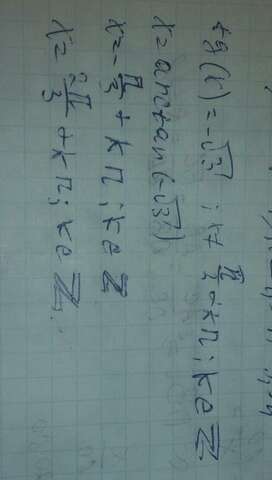 tg(x) = -√3 ; x ≠ π/2 + kπ ; k ∈ Z
x = arctan(-√3)
x = -π/3 + kπ ; k ∈ Z
x = 2π/3 + kπ ; k ∈ Z.